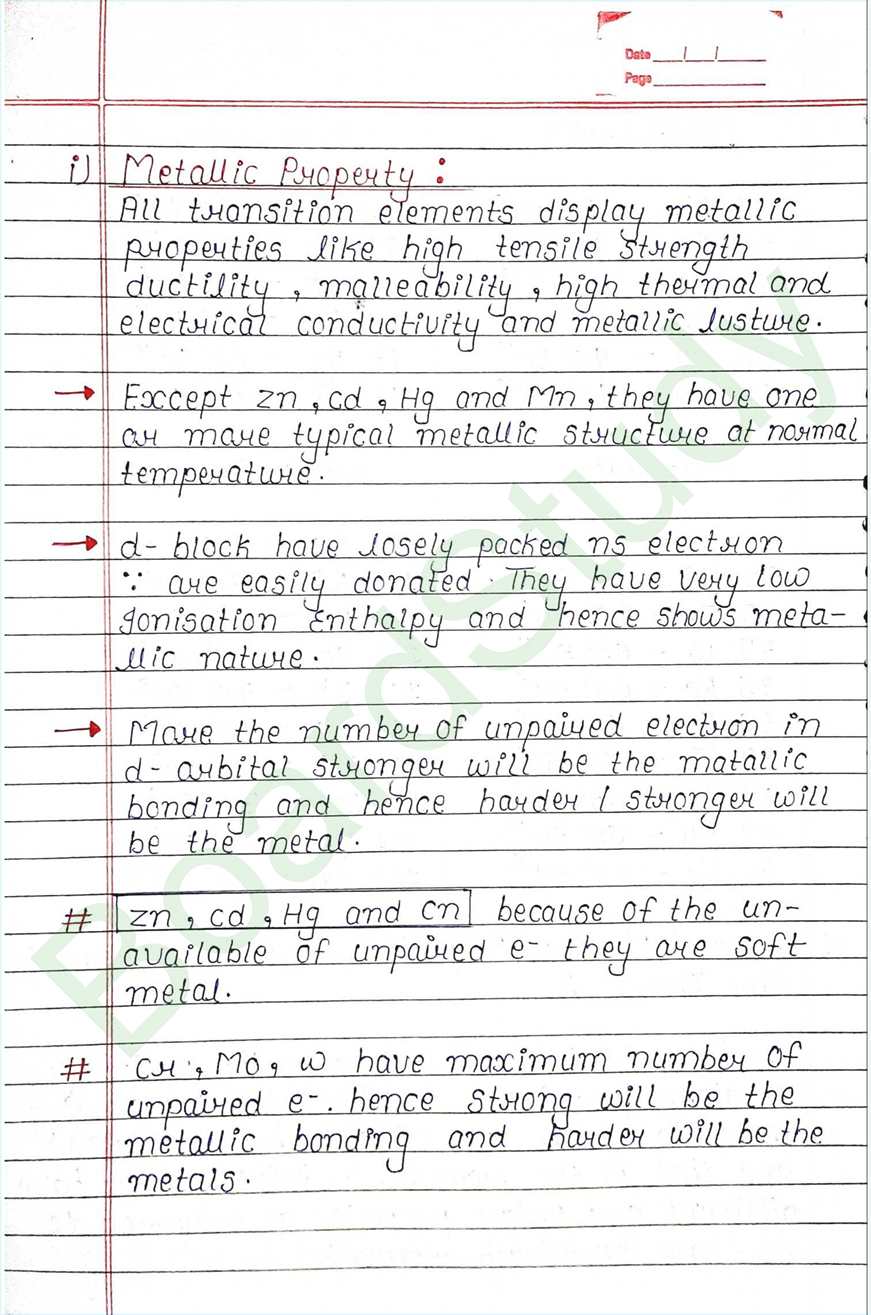 Date / /
Page
i) Metallic Property :
All transition elements display metallic
properties like high tensile strength
ductility , malleability , high thermal and
electrical conductivity and metallic lusture.
→ Exccept Zn , Cd , Hg and Mn , they have one
or more typical metallic structure at normal
temperature.
→ d- block have losely packed ns electron
∵ are easily donated. They have very low
Ionisation Enthalpy and hence shows meta-
llic nature.
→ More the number of unpaired electron in
d- orbital stronger will be the matallic
bonding and hence harder / stronger will
be the metal.
# Zn , Cd , Hg and Cn because of the un-
available of unpaired e- they are soft
metal.
# Cr , Mo , W have maximum number of
unpaired e-. hence strong will be the
metallic bonding and harder will be the
metals.
BoardStudy